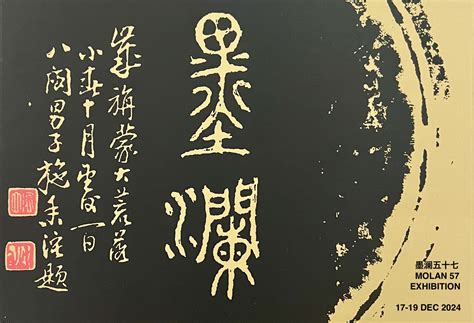 墨瀾
歲旃蒙大荒落
小春十月一日
八閩男子施香沱題
墨澜五十七
MOLAN 57
EXHIBITION
17-19 DEC 2024